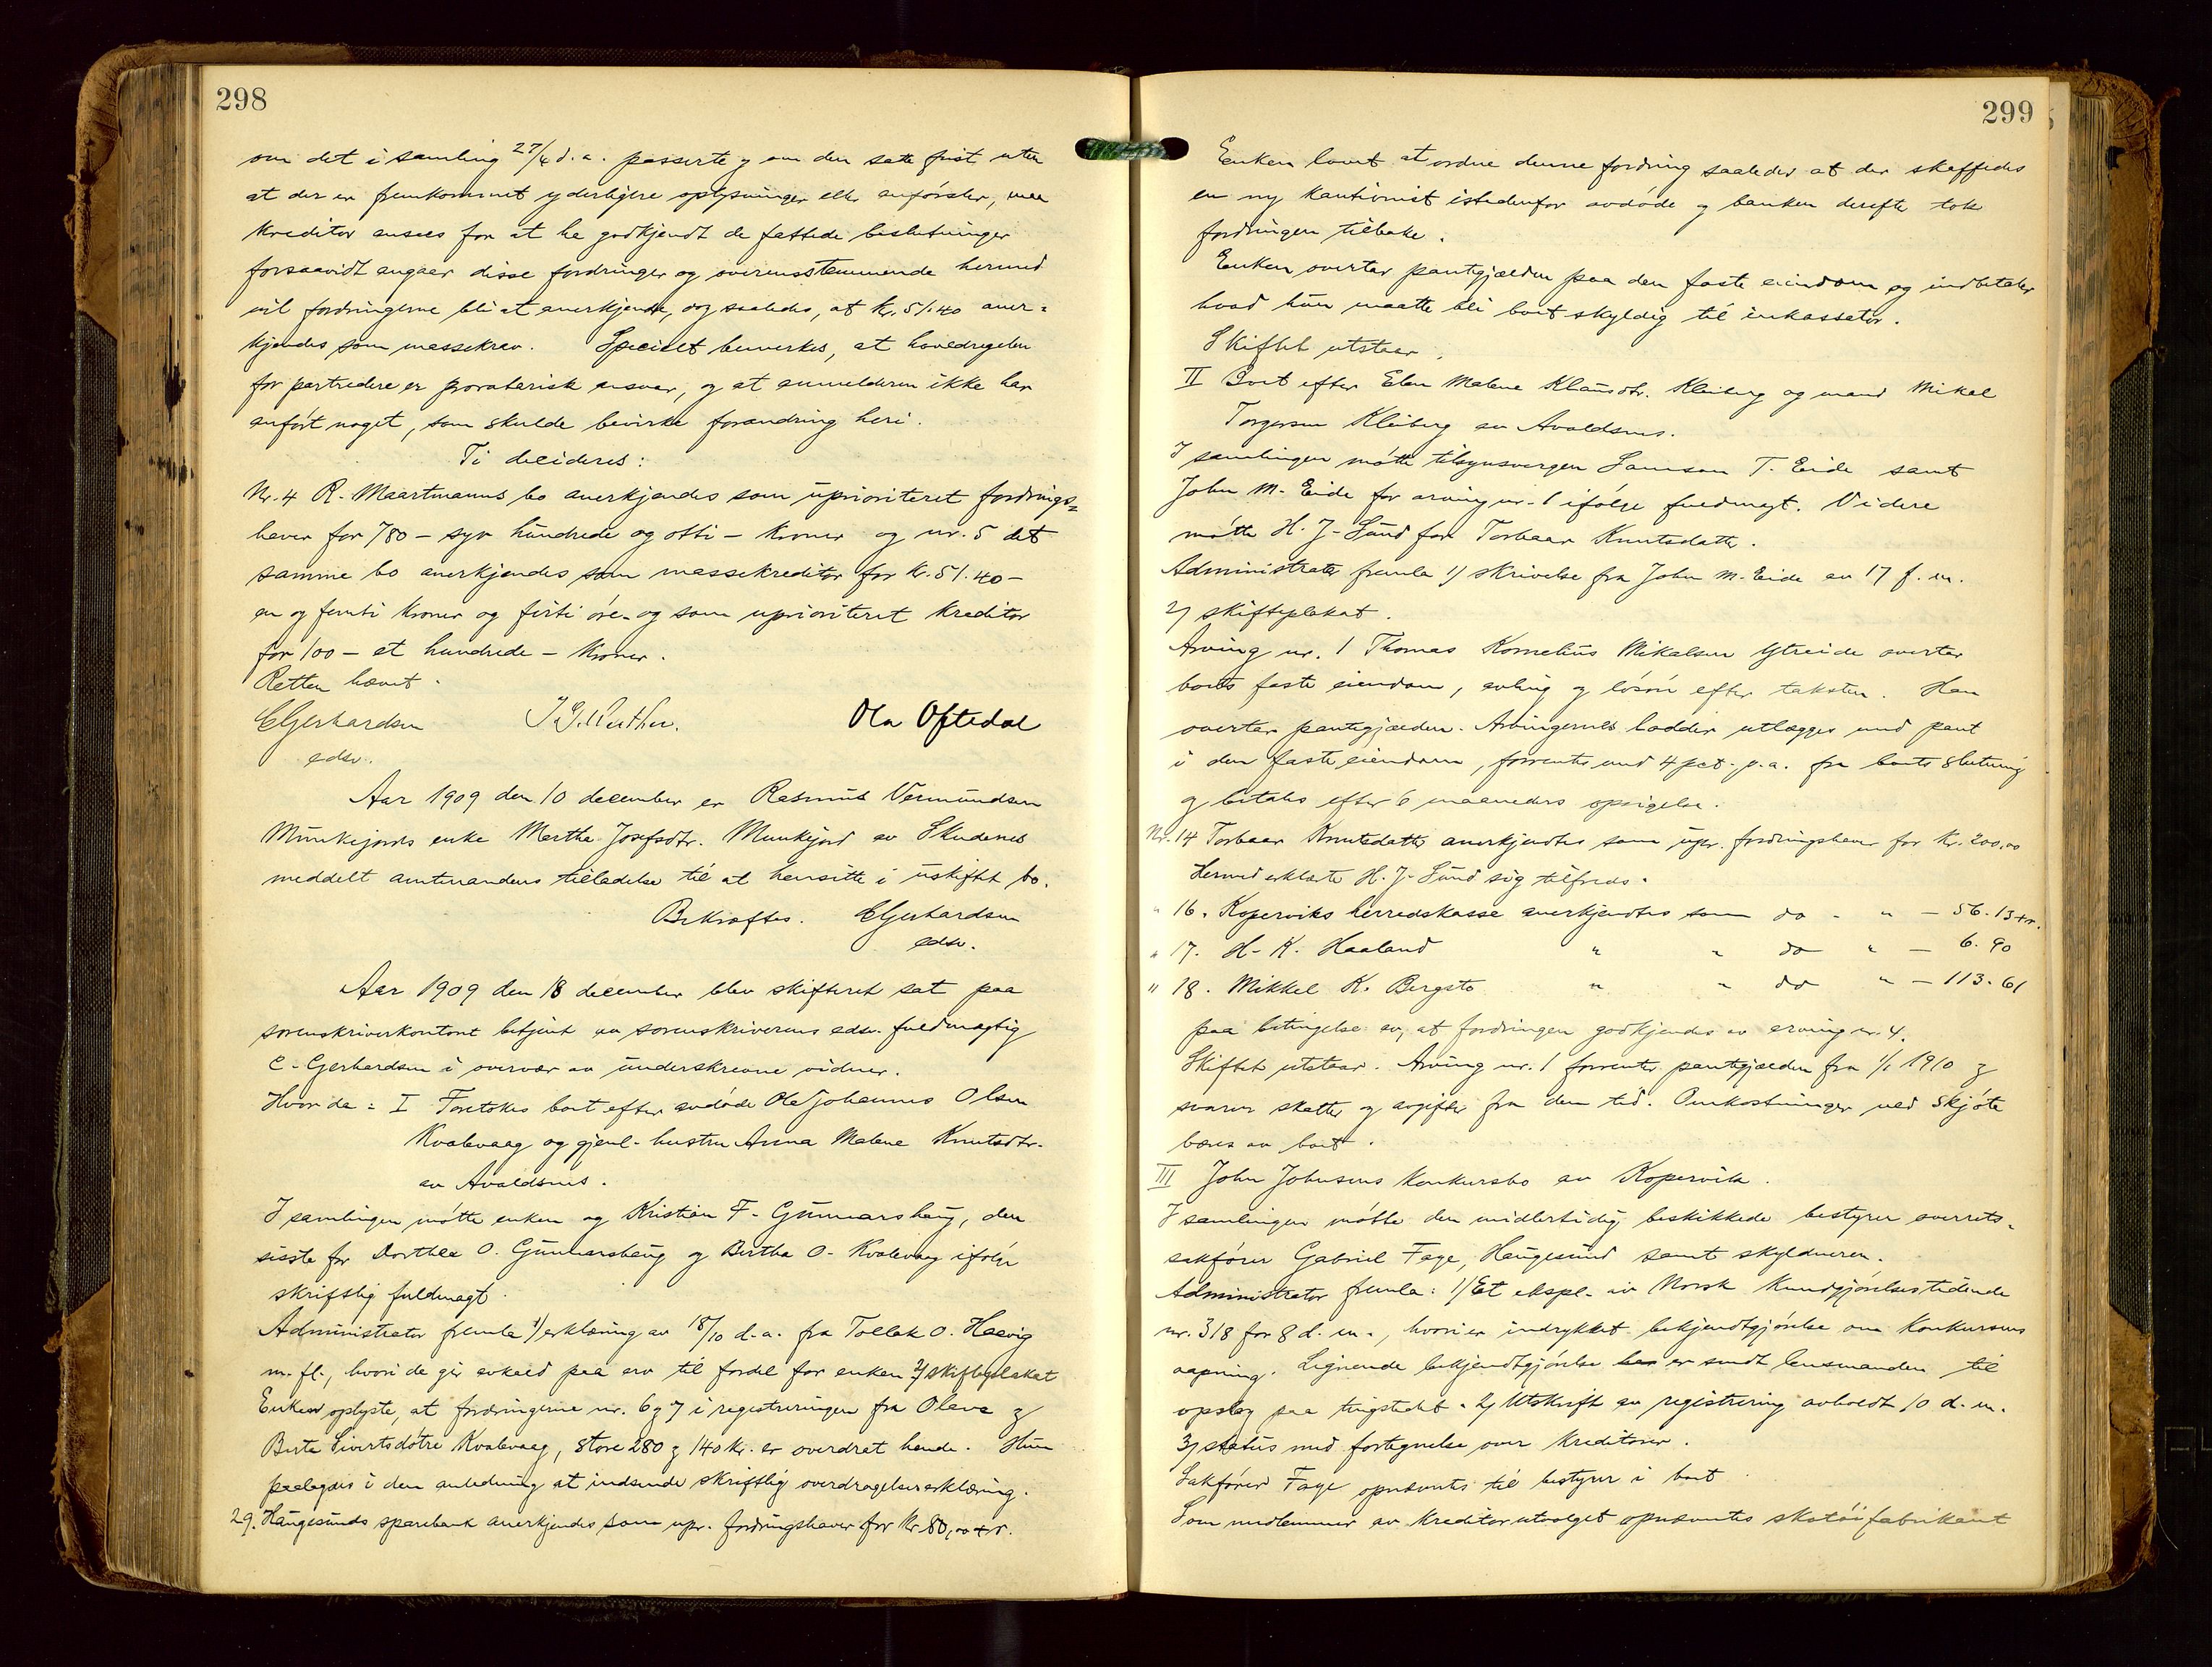 298
om det i samling 27/4 d.a. passerte og om den satte frist uten
at der er fremkommet yderligere oplysninger eller anførsler, maa
kreditor ansees for at ha godkjendt de fattede beslutninger
forsaavidt angaar disse fordringer og overensstemmende hermed
vil fordringerne bli at anerkjende, dog saaledes, at kr. 51.40 aner-
kjendes som massekrav. Specielt bemerkes, at hovedregelen
for partredere er proratarisk ansvar, og at anmelderen ikke har
anført noget, som skulde bevirke forandring heri.
Ti decideres:
Nr. 4 R. Maartmanns bo anerkjendes som uprioriteret fordrings-
haver for 780 – syv hundrede og otti – kroner og nr. 5 det
samme bo anerkjendes som massekreditor for kr. 51.40 –
en og femti kroner og firti øre – og som uprioriteret kreditor
for 100 – et hundrede – kroner.
Retten hævet.
EGerhardsen Ola Oftedal
edsv.
Aar 1909 den 10 december er Rasmus Vermundsen
Munkejords enke Marthe Josefsdtr. Munkejord av Skudenes
meddelt amtmandens tilladelse til at hensitte i uskiftet bo.
Bekræftes. EGerhardsen
edsv.
Aar 1909 den 18 december blev skifteret sat paa
sorenskriverkontoret betjent av sorenskriverens edsv. fuldmægtig
E. Gerhardsen i overvær av underskrevne vidner.
Hvor da: I Foretokes boet efter avdøde Ole Johannes Olsen
Kvalevaag og gjenl. hustru Anna Malene Knutsdtr.
av Avaldsnes.
I samlingen møtte enken og Kristian F. Gunnarshaug, den
sisste for Dorthea O. Gunnarshaug og Bertha O. Kvalevaag ifølge
skriftlig fuldmagt.
Administrator fremla 1/ erklæring av 18/10 d.a. fra Tollak O. Hævig
m. fl., hvori de gir avkald paa arv til fordel for enken 2/ skifteplakat
Enken oplyste, at fordringerne nr. 6 og 7 i registreringen fra Olava og
Berta Sivertsdøtre Kvalevaag, store 280 og 140 kr. er overdrat hende. Hun
paalegges i den anledning at indsende skriftlig overdragelseserklæring.
29. Haugesunds sparebank anerkjendes som upr. fordringshaver for kr. 80,00 + r.
299
Enken lovet at ordne denne fordring saaledes at der skaffedes
en ny kautionist istedenfor avdøde og banken derefter tok
fordringen tilbake.
Enken overtar pantegjælden paa den faste eiendom og indbetaler
hvad hun maatte bli boet skyldig til inkassator.
Skiftet utstaar.
II Boet efter Elen Malene Klausdtr. Kleiberg og mand Mikal
Torgersen Kleiberg av Avaldsnes.
I samlingen møtte tilsynsvergen Samson T. Eide samt
John M. Eide for arving nr. 1 ifølge fuldmagt. Videre
møtte H. J. Sund for Torbaar Knutsdatter.
Administrator fremla 1/ skrivelse fra John M. Eide av 17 f. m.
2/ skifteplakat.
Arving nr. 1 Thomas Kornelius Mikalsen Ytreide overtar
boets faste eiendom, avling og løsøre efter taksten. Han
overtar pantegjælden. Arvingernes lodder utlægges med pant
i den faste eiendom, forrentes med 4 pct. p.a. fra boets slutning
og betales efter 6 maaneders opsigelse.
Nr. 14 Torbaar Knutsdatter anerkjendtes som upr. fordringshaver for kr. 200,00
Hermed erklærte H. J. Sund sig tilfreds.
" 16. Koperviks herredskasse anerkjendtes som do " " – 56.13 + r.
" 17. H. K. Haaland " " do " – 6.90
" 18. Mikkel K. Bergstø " " do " – 113.61
paa betingelse av, at fordringen godkjendes av arving nr. 4.
Skiftet utstaar. Arving nr. 1 forrenter pantegjælden fra 1/1 1910 og
svarer skatter og avgifter fra den tid. Omkostninger ved skjøte
bæres av boet.
III John Johnsens konkursbo av Kopervik.
I samlingen møtte den midlertidig beskikkede bestyrer overrets-
sakfører Gabriel Fage, Haugesund samt skyldneren.
Administrator fremla: 1/ Et ekspl. av Norsk Kundgjørelsestidende
nr. 318 for 8 d. m., hvori er indrykket bekjendtgjørelse om konkursens
aapning. Lignende bekjendtgjørelse er sendt lensmanden til
opslag paa tingstedet. 2/ Utskrift av registrering avholdt 10 d. m.
3/ status med fortegnelse over kreditorer.
Sakfører Fage opnævntes til bestyrer i boet
Som medlemmer av kreditorutvalget opnævntes skotøifabrikant